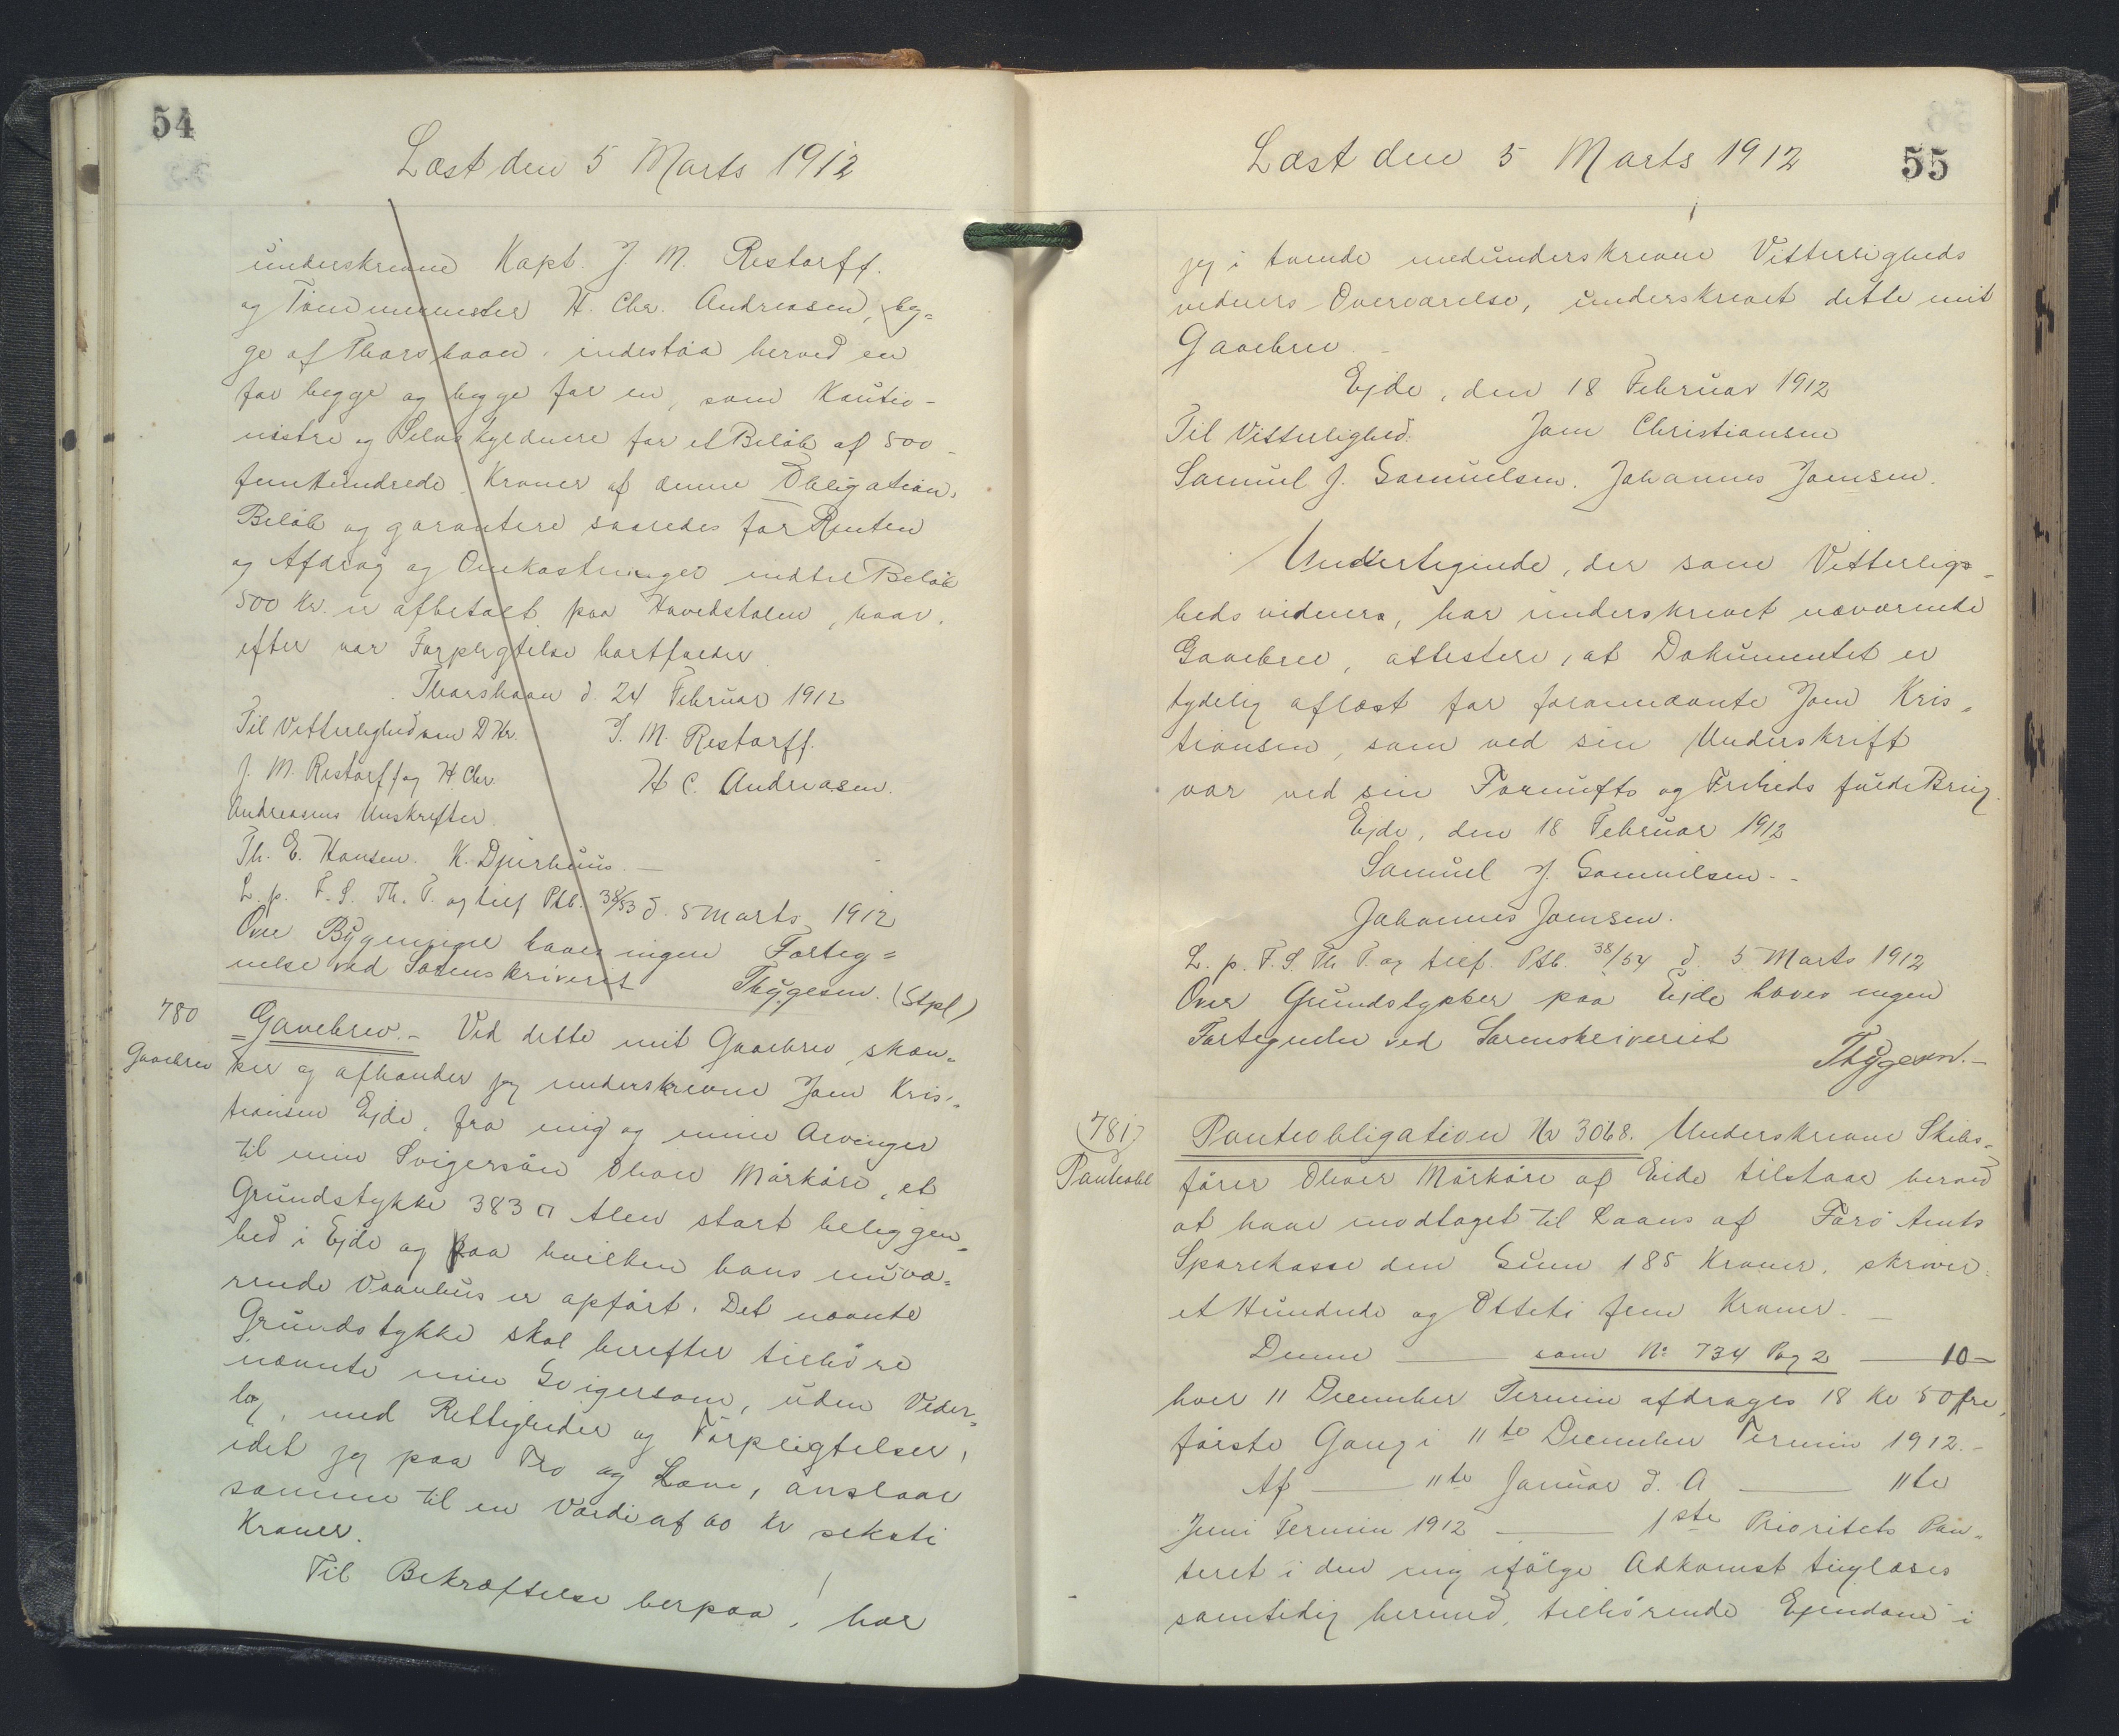 54
Læst den 5 Marts 1912
underskrevne Kapt. J. M. Restorff.
og Tømmermester H. Chr. Andreasen, beg=
ge af Thorshavn, indestaa herved en
for begge og begge for en, som Kautio-
nister og Selvskyldnere for et Beløb af 500
femhundrede Kroner af denne Obligations
Beløb og garantere saaledes for Renten
og Afdrag og Omkostninger indtil Beløb
500 Kr. er afbetalt paa Hovedstolen, hvor-
efter vor Forpligtelse bortfalder
Thorshavn d. 24 Februar 1912
Til Vitterlighed om D Hr. J. M. Restorff.
J. M. Restorff og H Chr. H C. Andreasen.
Andreasens Unskrifter.
Th. E. Hansen. K. Djurhuus.
L. p. F. S. Th. T. og tilf Ptb. 38/53 d. 5 Marts 1912
Over Bygningne haves ingen Forteg=
nelse ved Sorenskriveriet Thygesen. (Stpl)
780
Gavebrev
Gavebrev.- Ved dette mit Gavebrev skæn-
ker og afhænder jeg underskrevne Joen Kris-
tiansen Ejde, fra mig og mine Arvinger
til min Svigersøn Oliver Mørkøre, et
Grundstykke 383 □ Alen stort beliggen-
hed i Ejde og paa hvilken hans nuvæ-
rende Vaanhus er opført. Det nævnte
Grundstykke skal herefter tilhøre
nævnte min Svigersøn, uden Veder-
lag, med Rettigheder og Forpligtelser,
idet jeg paa Tro og Love, anslaar
samme til en Værdi af 60 Kr seksti
Kroner.
Til Bekræftelse herpaa, har
55
Læst den 5 Marts 1912
jeg i tvende medunderskrevne Vitterligheds
vidners Overværelse, underskrevet dette mit
Gavebrev
Ejde, den 18 Februar 1912
Til Vitterlighed: Joen Christiansen
Samuel J. Samuelsen. Johannes Joensen.
Undertegnede, der som Vitterlig-
heds vidnere, har underskrevet nærværende
Gavebrev, attestere, at Dokumentet er
tydelig oflæst for forannævnte Joen Kris-
tiansen, som ved sin Underskrift
var ved sin Fornufts og Friheds fulde Brug.
Ejde, den 18 Februar 1912
Samuel J. Samuelsen.-
Johannes Joensen.
L. p. F. S. Th T. og tilf. Ptb. 38/54 d. 5 Marts 1912
Over Grundstykker paa Ejde haves ingen
Fortegnelse ved Sorenskriveriet
Thygesen.-
781
Panteobl
Panteobligation Nr 3068. Underskrevne Skibs-
fører Oliver Mørkøre af Eide tilstaar herved
at have modtaget til Laans af Færø Amts
Sparekasse den Sum 185 Kroner, skriver
et Hundrede og Otteti fem Kroner.
Denne — som No 734 Pag 2 — 10 —
hver 11 December Termin afdrages 18 Kr 50 Øre,
første Gang i 11te December Termin 1912.-
Af — 11te Januar d. A — 11te
Juni Termin 1912 — 1ste Prioritets Pan-
teret i den mig ifølge Adkomst tinglæses
samtidig hermed, tilhørende Ejendom i